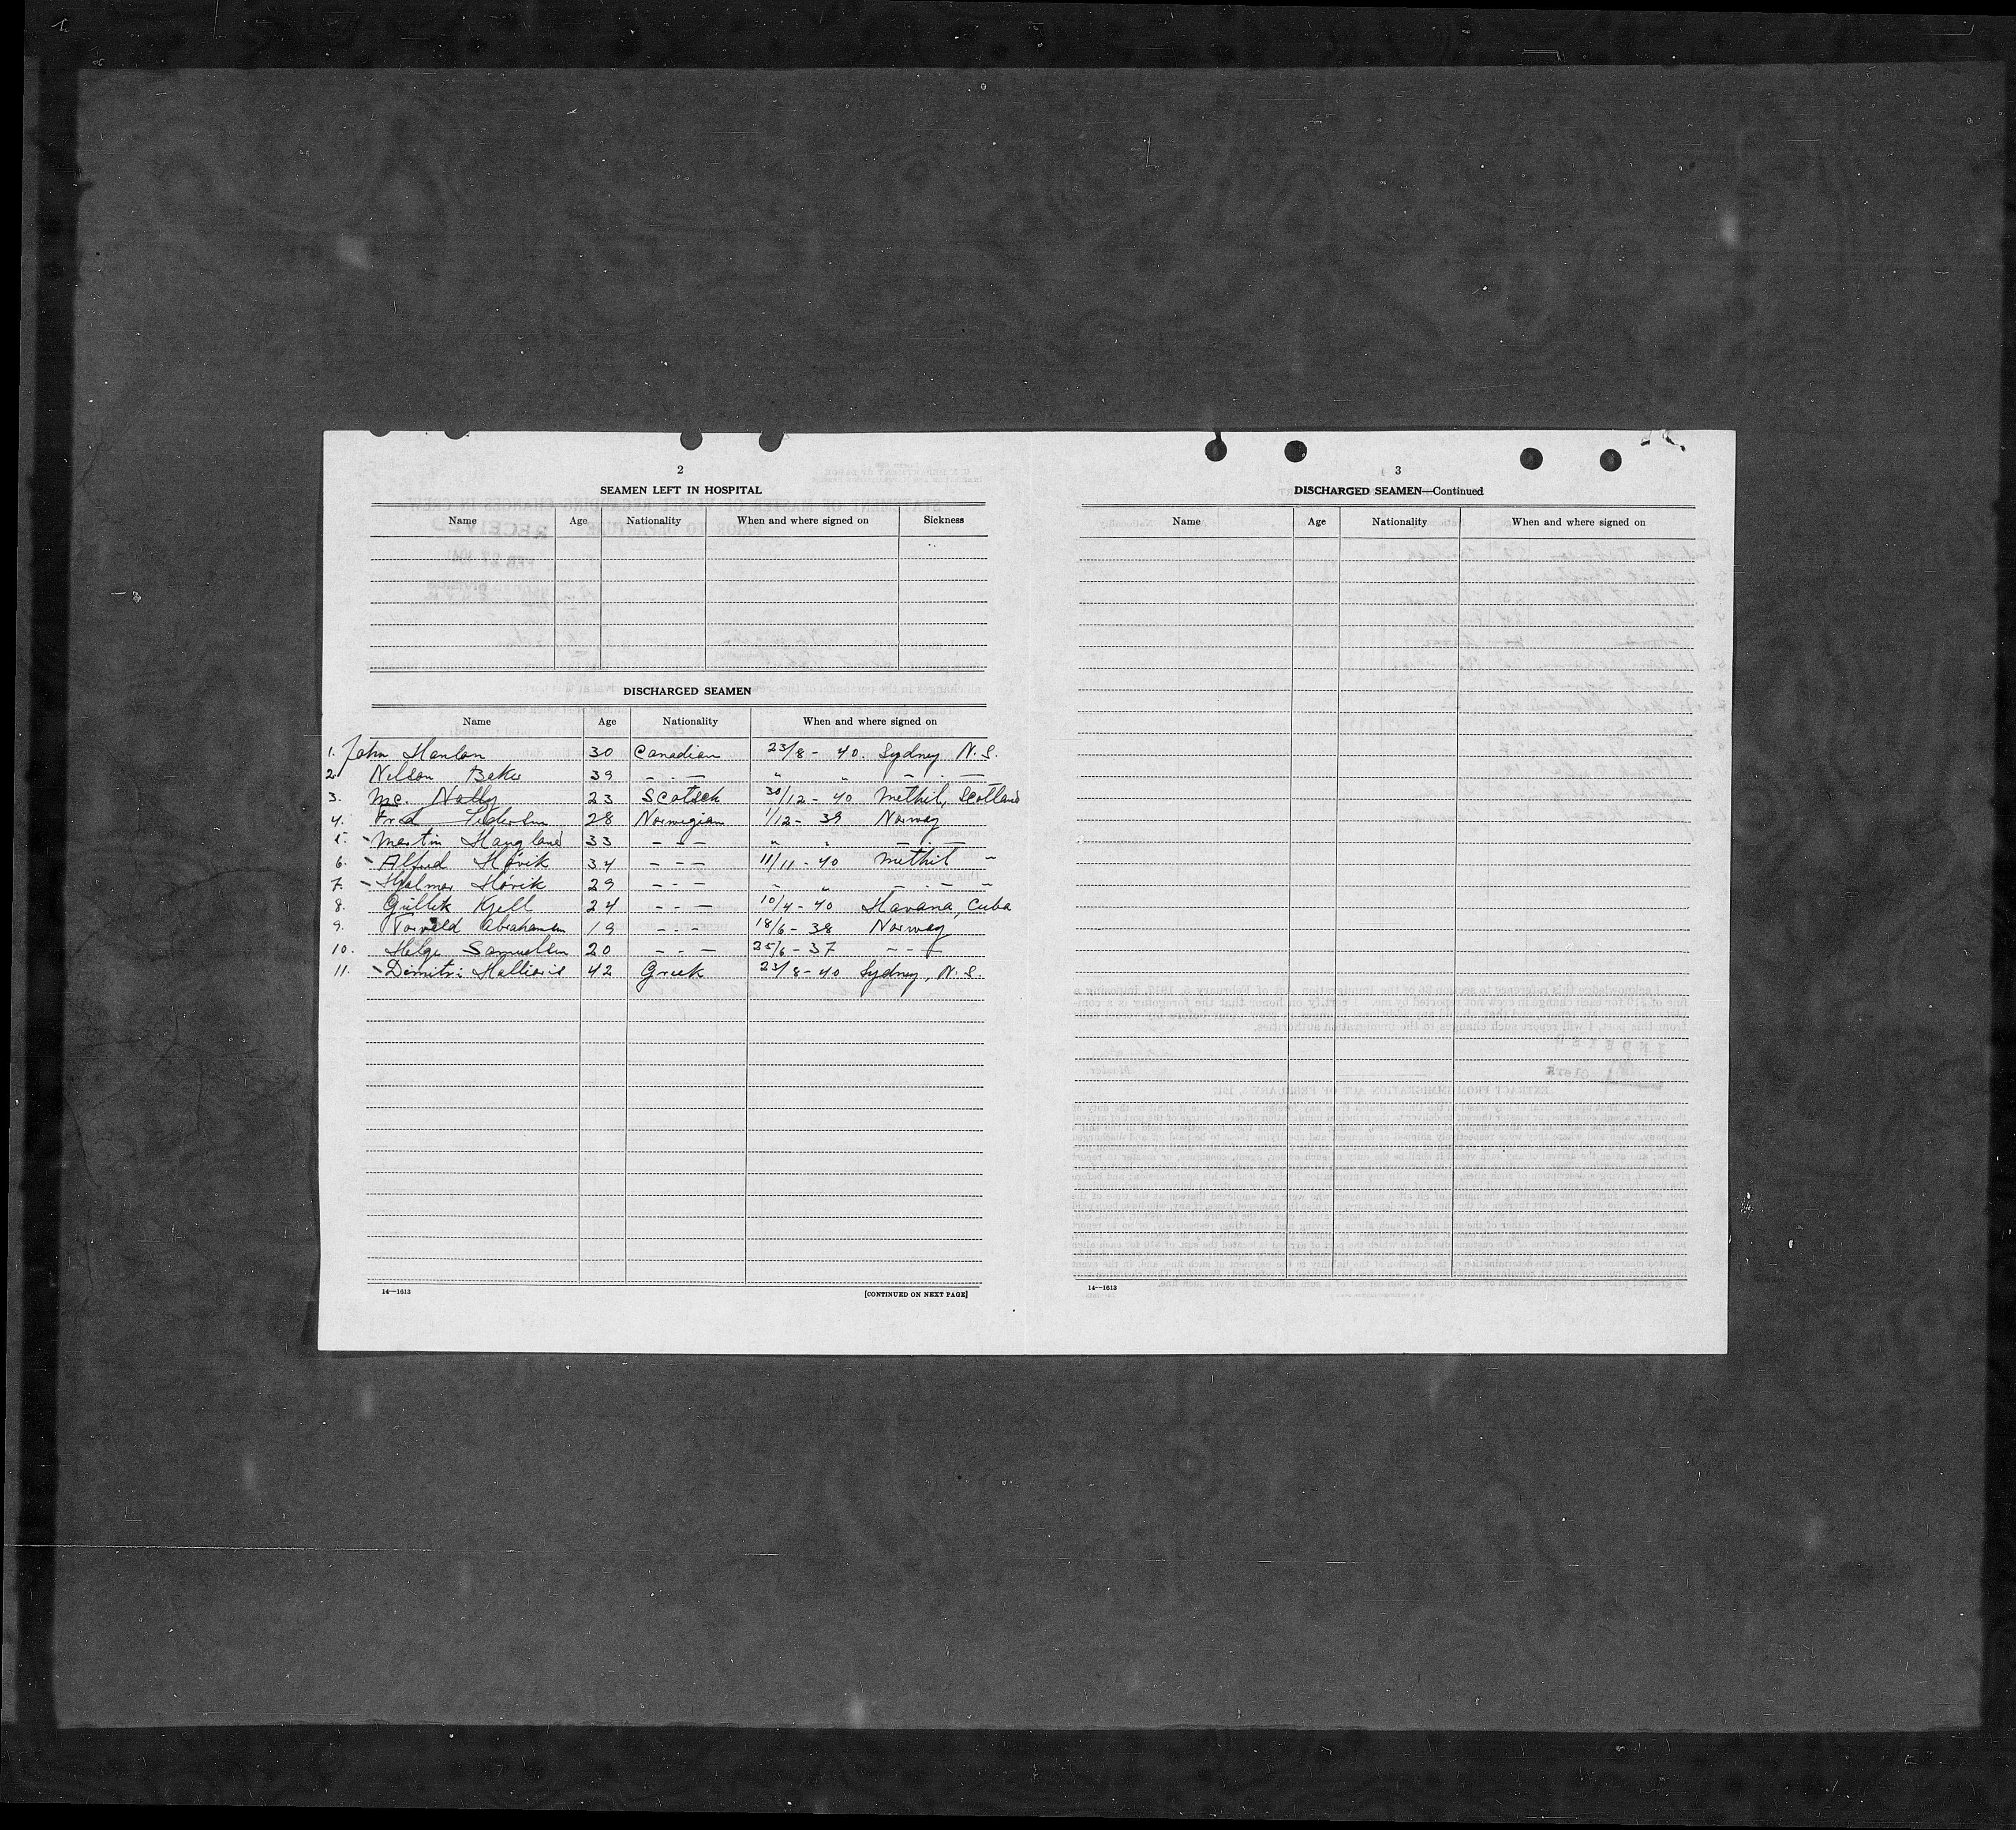 2
SEAMEN LEFT IN HOSPITAL
Name Age Nationality When and where signed on Sickness
DISCHARGED SEAMEN
Name Age Nationality When and where signed on
1. John Hanlon 30 Canadian 23/8 - 40. Sydney N.S.
2. Nelson Baker 39 - . - " " - . -
3. Mc. Nally 23 Scotsch 30/12 - 40 Methil, Scotland
4. Fred 28 Norwegian 1/12 - 39 Norway
5. - Martin Haugland 33 - - - " " - . -
6. - Alfred Høvik 34 - - - 11/11 - 40 Methil -
7. - Hjalmar Høvik 29 - - - " " - . - -
8. Gullik Kjell 24 - - - 10/4 - 40 Havana, Cuba
9. Torvald Abrahamsen 19 - - - 18/6 - 38 Norway
10. Helge Samuelsen 20 - - - 25/6 - 37 - - -
11. - Dimitri 42 Greek 23/8 - 40 Sydney, N.S.
14—1613 [CONTINUED ON NEXT PAGE]
3
DISCHARGED SEAMEN—Continued
Name Age Nationality When and where signed on
14—1613